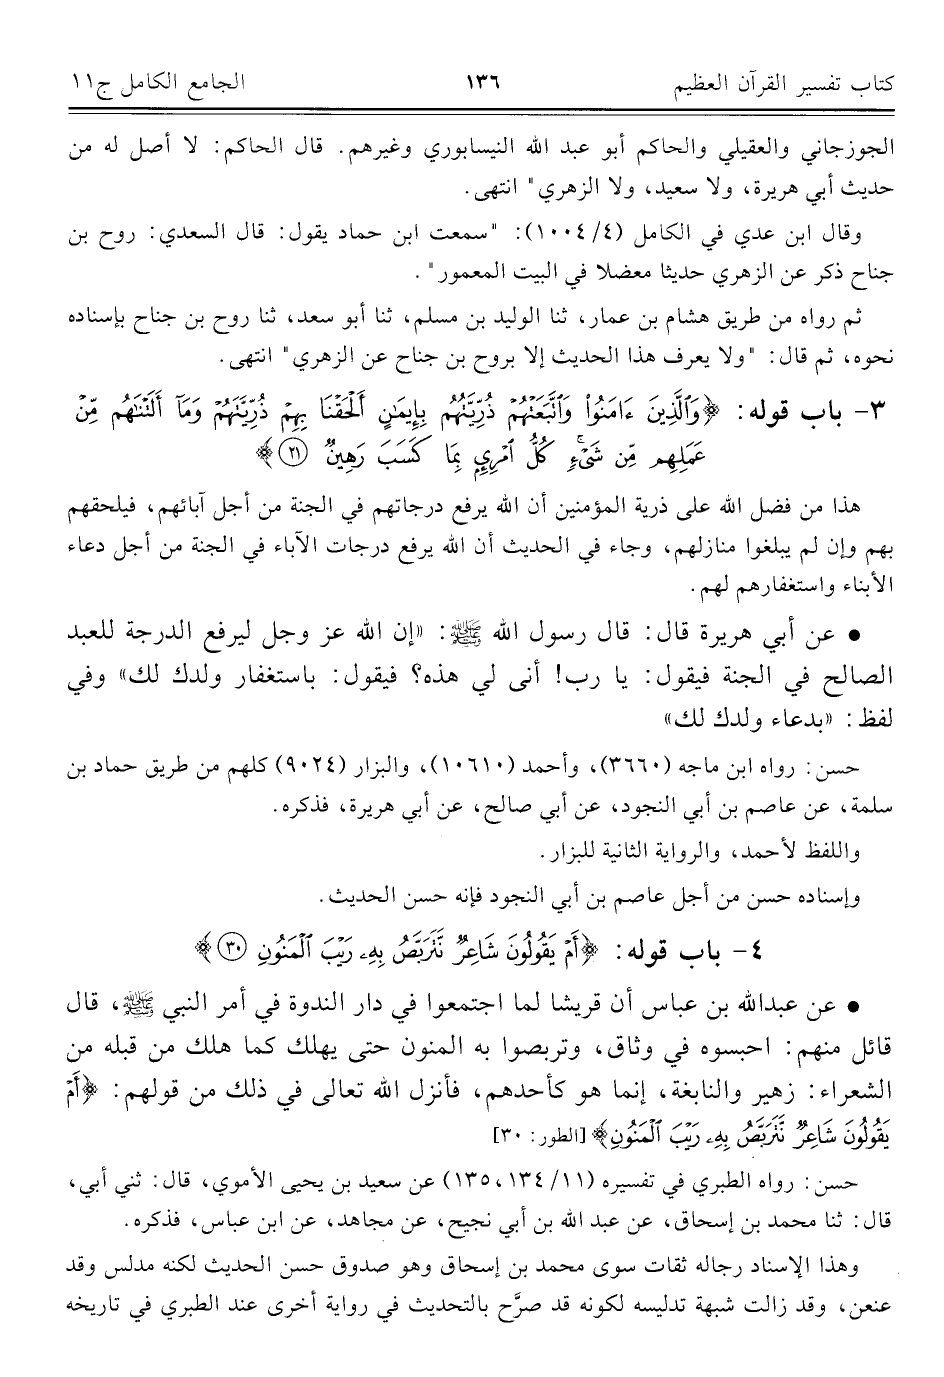 كتاب تفسير القرآن العظيم ١٣٦ الجامع الكامل ج١١
الجوزجاني والعقيلي والحاكم أبو عبد الله النيسابوري وغيرهم. قال الحاكم: لا أصل له من
حديث أبي هريرة، ولا سعيد، ولا الزهري" انتهى.
وقال ابن عدي في الكامل (٤/ ١٠٠٤): "سمعت ابن حماد يقول: قال السعدي: روح بن
جناح ذكر عن الزهري حديثا معضلا في البيت المعمور".
ثم رواه من طريق هشام بن عمار، ثنا الوليد بن مسلم، ثنا أبو سعد، ثنا روح بن جناح بإسناده
نحوه، ثم قال: "ولا يعرف هذا الحديث إلا بروح بن جناح عن الزهري" انتهى.
٣- باب قوله: ﴿وَٱلَّذِينَ ءَامَنُوا۟ وَٱتَّبَعَتْهُمْ ذُرِّيَّتُهُم بِإِيمَٰنٍ أَلْحَقْنَا بِهِمْ ذُرِّيَّتَهُمْ وَمَآ أَلَتْنَٰهُم مِّنْ
عَمَلِهِم مِّن شَىْءٍۚ كُلُّ ٱمْرِئٍۭ بِمَا كَسَبَ رَهِينٌ ٢١﴾
هذا من فضل الله على ذرية المؤمنين أن الله يرفع درجاتهم في الجنة من أجل آبائهم، فيلحقهم
بهم وإن لم يبلغوا منازلهم، وجاء في الحديث أن الله يرفع درجات الآباء في الجنة من أجل دعاء
الأبناء واستغفارهم لهم.
• عن أبي هريرة قال: قال رسول الله ﷺ: «إن الله عز وجل ليرفع الدرجة للعبد
الصالح في الجنة فيقول: يا رب! أنى لي هذه؟ فيقول: باستغفار ولدك لك» وفي
لفظ: «بدعاء ولدك لك»
حسن: رواه ابن ماجه (٣٦٦٠)، وأحمد (١٠٦١٠)، والبزار (٩٠٢٤) كلهم من طريق حماد بن
سلمة، عن عاصم بن أبي النجود، عن أبي صالح، عن أبي هريرة، فذكره.
واللفظ لأحمد، والرواية الثانية للبزار.
وإسناده حسن من أجل عاصم بن أبي النجود فإنه حسن الحديث.
٤- باب قوله: ﴿أَمْ يَقُولُونَ شَاعِرٌ نَّتَرَبَّصُ بِهِۦ رَيْبَ ٱلْمَنُونِ ٣٠﴾
• عن عبدالله بن عباس أن قريشا لما اجتمعوا في دار الندوة في أمر النبي ﷺ، قال
قائل منهم: احبسوه في وثاق، وتربصوا به المنون حتى يهلك كما هلك من قبله من
الشعراء: زهير والنابغة، إنما هو كأحدهم، فأنزل الله تعالى في ذلك من قولهم: ﴿أَمْ
يَقُولُونَ شَاعِرٌ نَّتَرَبَّصُ بِهِۦ رَيْبَ ٱلْمَنُونِ﴾ [الطور: ٣٠]
حسن: رواه الطبري في تفسيره (١١/ ١٣٤، ١٣٥) عن سعيد بن يحيى الأموي، قال: ثني أبي،
قال: ثنا محمد بن إسحاق، عن عبد الله بن أبي نجيح، عن مجاهد، عن ابن عباس، فذكره.
وهذا الإسناد رجاله ثقات سوى محمد بن إسحاق وهو صدوق حسن الحديث لكنه مدلس وقد
عنعن، وقد زالت شبهة تدليسه لكونه قد صرَّح بالتحديث في رواية أخرى عند الطبري في تاريخه